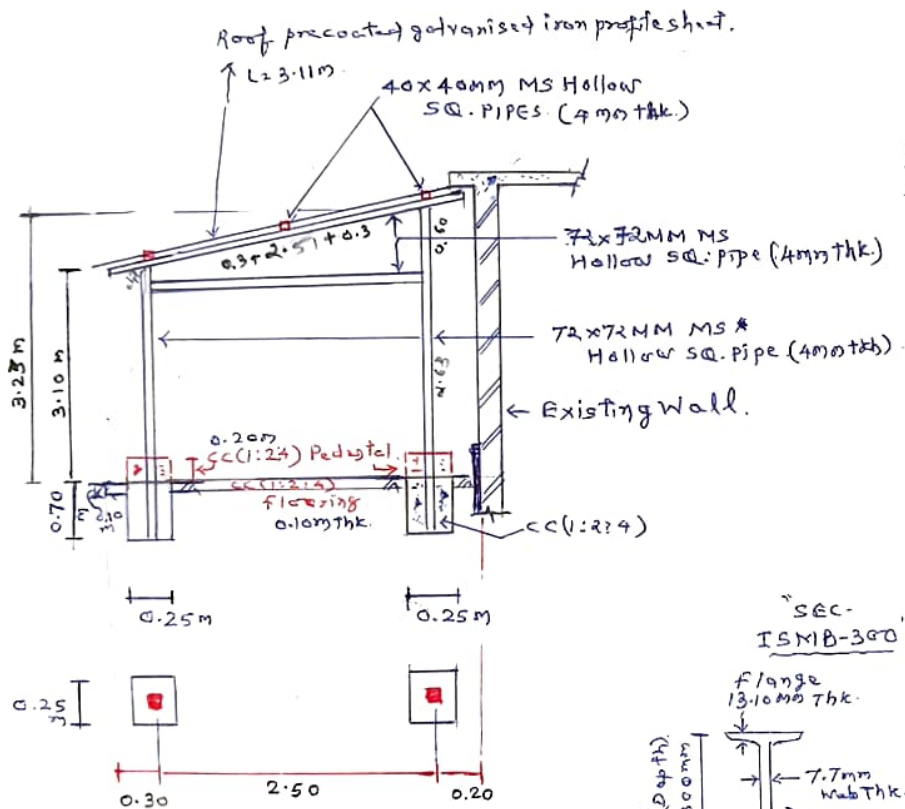 Roof precoated galvanised iron profile sheet.
L=3.11m
40x40mm MS Hollow
SQ. PIPES. (4mm thk.)
0.3+2.51+0.3
0.60
72x72MM MS
Hollow SQ. pipe (4mm thk.)
72x72MM MS
Hollow SQ. pipe (4mm thk)
3.10 m
2.63
← Existing Wall.
0.20m
CC(1:2:4) Pedestal.
CC(1:2:4)
flooring
0.10m thk.
0.70
m
0.10
m
CC(1:2:4)
0.25m
0.25m
"SEC-
ISMB-300"
flange
13.10mm Thk.
0.25
m
7.7mm
Web Thk.
0.30
2.50
0.20